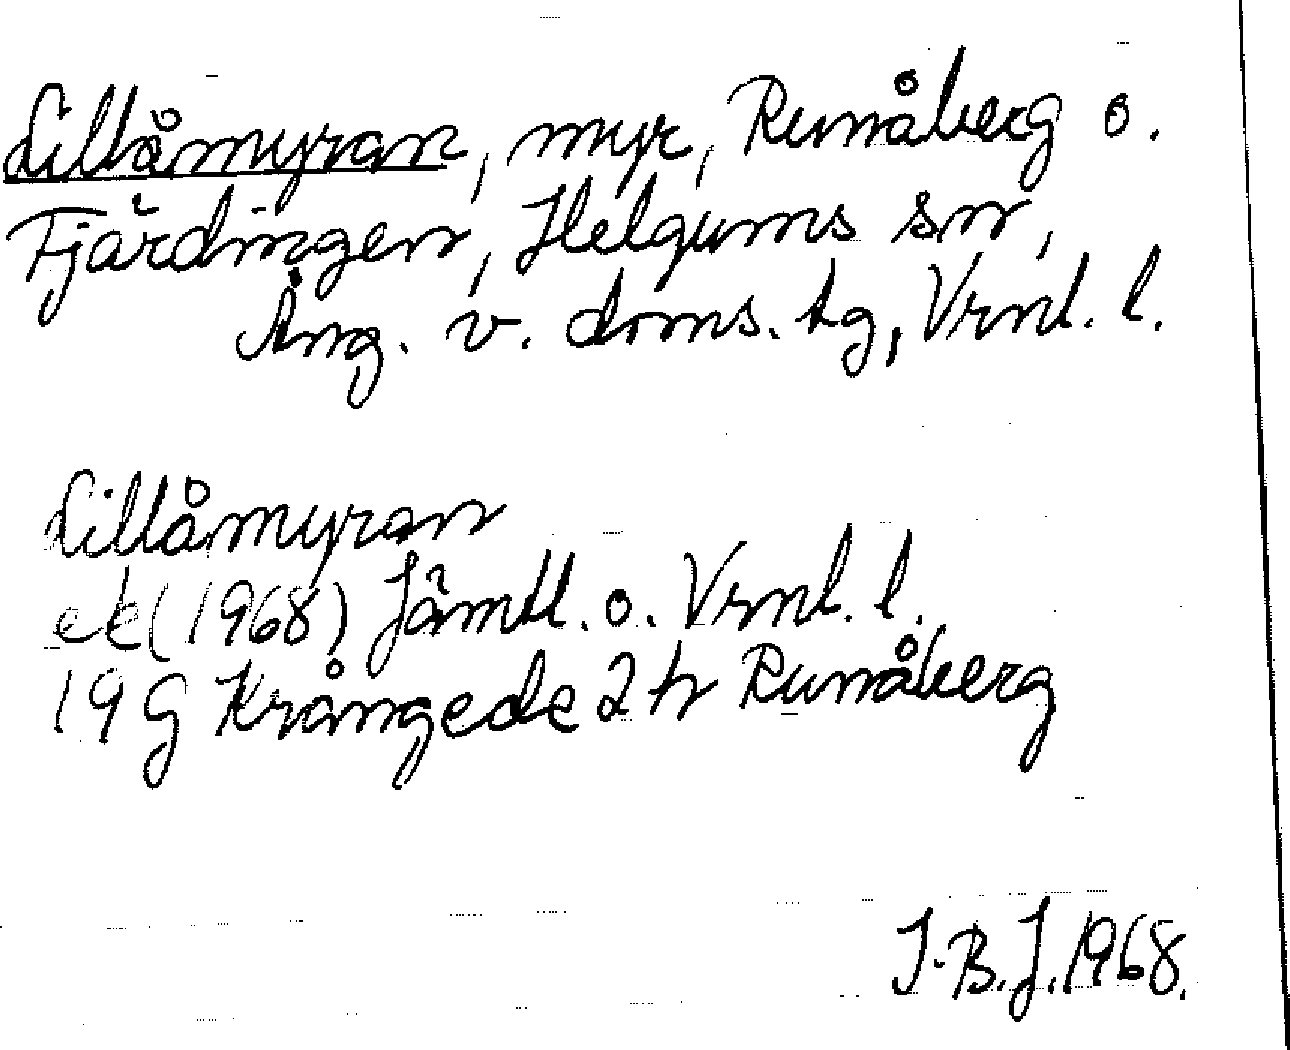 Lillåmyran, myr, Runåberg o.
Fjärdingen, Helgums sn,
Ång. v. doms. hg, Vrnl. l.
Lillåmyran
ek (1968) Jämtl. o. Vrnl. l.
19 G Krångede 2 h Runåberg
I-B.J. 1968.